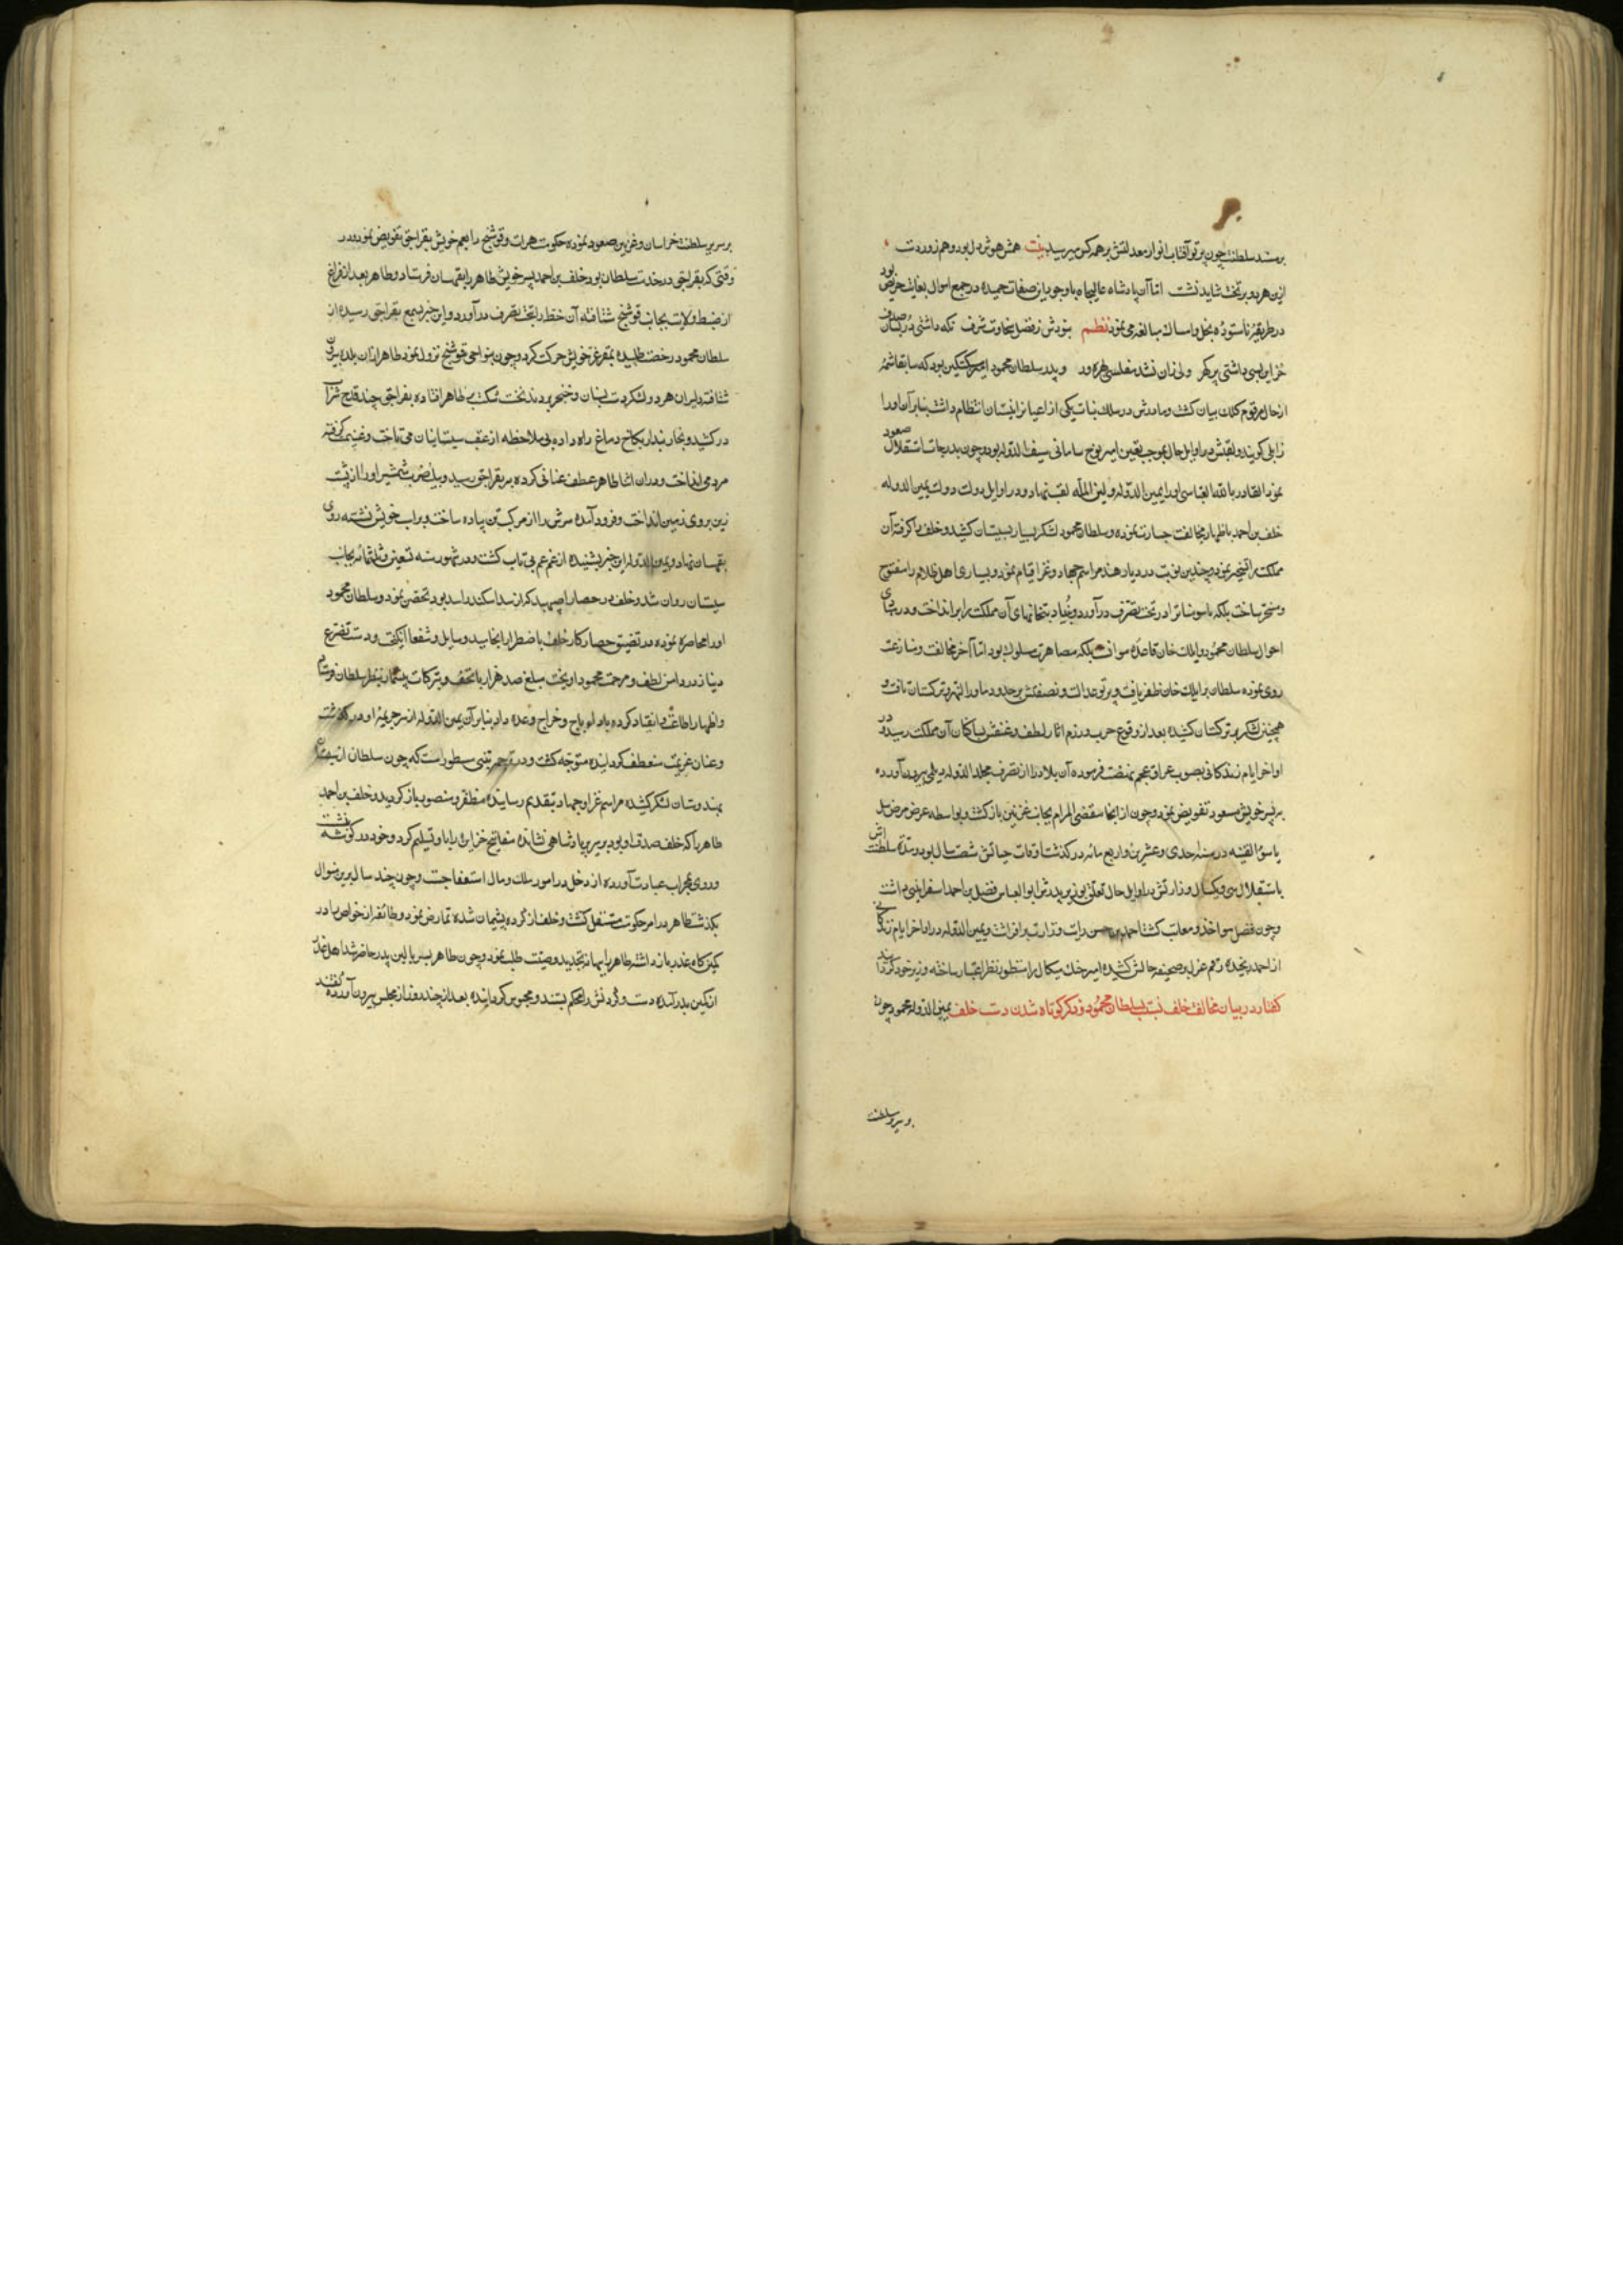 بر مسند سلطنت چون پرتو آفتاب انوار معدلتش بر همه کس میرسید بیت همش هوش دل بود و هم زور دست
ازین هر دو بر تخت شاید نشست اما آن پادشاه عالیجاه با وجود این صفات حمیده در جمع اموال بغایت حریص بود
در طریقه ناستوده بخل و امساک مبالغه می نمود نظم بنودش ز فضل سخاوت شرف نکه داشتی در بسان صدف
خزاین بسی داشتی پر کهر ولی زان نشد مفلسی بهره ور و پدر سلطان محمود امیر سبکتکین بود که سابقا شمهٔ
از حال او مرقوم کلک بیان کشت و مادرش در سلک بنات یکی از اعیان زابلستان انتظام داشت بنابر آن او را
زابلی کویند و لقبش در اوایل حال بموجب تعیین امیر نوح سامانی سیف الدوله بود و چون بدرجات استقلال صعود
نمود القادر بالله العباسی او را یمین الدوله و امین المله لقب نهاد و در اوایل دولت یمین الدوله
خلف بن احمد باظهار مخالفت جسارت نموده و سلطان محمود لشکر بسیار بسیستان کشید و خلف را کرفته آن
مملکت را تسخیر نمود و چندین نوبت در دیار هند مراسم جهاد و غزا قیام نمود و بسیاری اهل ظلام را مفتوح
و مسخر ساخت بلکه تا سومنات را در تحت تصرف درآورد و بنیاد بتخانهای آن مملکت را برانداخت و در مبادی
احوال سلطان محمود و ایلک خان قاعده موافقت بلکه مصاهرت مسلوک بود اما آخر مخالفت و منازعت
روی نموده سلطان بر ایلک خان ظفر یافت و پرتو عدالت و نصفتش بر حدود ماوراء النهر و ترکستان تافت و
همچنین لشکر بترکستان کشیده بعد از وقوع حرب و رزم آثار لطف و عنفش بساکنان آن مملکت رسید و در
اواخر ایام زندکانی بصوب عراق عجم نهضت فرموده آن بلاد را از تصرف مجد الدوله دیلمی بیرون آورده
بپسر خویش مسعود تفویض نمود و چون از آنجا مقضی المرام بجانب غزنین بازکشت بواسطه عرض مرض سل
یا سوء القنیه در سنه احدی و عشرین و اربع مائه درکذشت اوقات حیاتش شصت سال بود و مدت سلطنتش
باستقلال سی و یکسال وزارتش در اوایل حال تعلق بوزیر پدرش ابو العباس فضل بن احمد اسفراینی داشت
و چون فضل مواخذ و معاتب کشت احمد بن حسن رایت وزارت برافراشت و یمین الدوله در اواخر ایام زندکانی
از احمد رنجیده رقم عزل بر صحیفه حالش کشیده امیر حسنک میکال را منظور نظر اعتبار ساخته وزیر خود کردانید
کفتار در بیان مخالفت خلف نسبت بسلطان محمود و ذکر کوتاه شدن دست خلف یمین الدوله محمود چون
بر سریر سلطنت
بر سریر سلطنت خراسان و غزنین صعود نموده حکومت هرات و فوشنج را بعم خویش بغراجق تفویض نمود و در
وقتی که بغراجق در خدمت سلطان بود خلف بن احمد پسر خویش طاهر را بقهستان فرستاد و طاهر بعد از فراغ
از ضبط ولایت بجانب فوشنج شتافته آن خطه را بتحت تصرف درآورد و این خبر بسمع بغراجق رسیده از
سلطان محمود رخصت طلبیده بمقر عز خویش حرکت کرد و چون بنواحی فوشنج نزول نمود طاهر از آن بلده بیرون
شتافته دلیران هر دو لشکر دست بسنان و خنجر بردند نخست شکست بر طاهر افتاده بغراجق چند قدح شراب
درکشید و بخار پندار بکاخ دماغ راه داده بی ملاحظه از عقب سیستانیان می تاخت و غنیمت کرفته
مردم می انداخت و در آن اثنا طاهر عطف عنانی کرده بر بغراجق رسید و بیک ضرب شمشیر او را از پشت
زین بروی زمین انداخت و فرود آمده سرش را از مرکب تن پیاده ساخت و بر اسب خویش نشسته روی
بقهستان نهاد و یمین الدوله این خبر شنیده از غم عم بی تاب کشت و در شهور سنه تسعین و ثلثمائه بجانب
سیستان روان شد و خلف در حصار اصپهبد که از سد اسکندر اسد بود تحصن نمود و سلطان محمود
او را محاصره نموده در تضییق حصار کار خلف باضطرار انجامید وسایل و شفعا انکیخت و دست تضرع
و نیاز در دامن لطف و مرحمت محمود آویخت مبلغ صد هزار با تحف و تبرکات بیشمار بنظر سلطان فرستاد
و اظهار اطاعت و انقیاد کرده باد او باج و خراج وعده داد بنابر آن یمین الدوله از سر جریمه او درکذشت
و عنان عزیمت منعطف کردانیده متوجه کشت و در ترجمه یمینی مسطور است که چون سلطان از سیستان
بهندوستان لشکر کشیده مراسم غزا و جهاد بتقدیم رسانیده مظفر و منصور باز کردید و خلف بن احمد
طاهر را که خلف صدق او بود بر سریر پادشاهی نشانده مفاتیح خزاین را باو تسلیم کرد و خود در کوشه نشست
و روی بمحراب عبادت آورده از دخل در امور ملک و مال استعفا جست و چون چند سال برین منوال
بکذشت طاهر در امر حکومت مستقل کشت و خلف از کرده پشیمان شده تمارض نمود و طائفه از خواص را در
کمینکاه غدر باز داشته طاهر را ببهانه تجدید وصیت طلب نمود و چون طاهر بسر بالین پدر حاضر شد اهل غدر
از کمین بدر آمده دست و کردنش را محکم ببستند و محبوس کردانیده بعد از چند روز از مجلس بیرون آورده کفتند